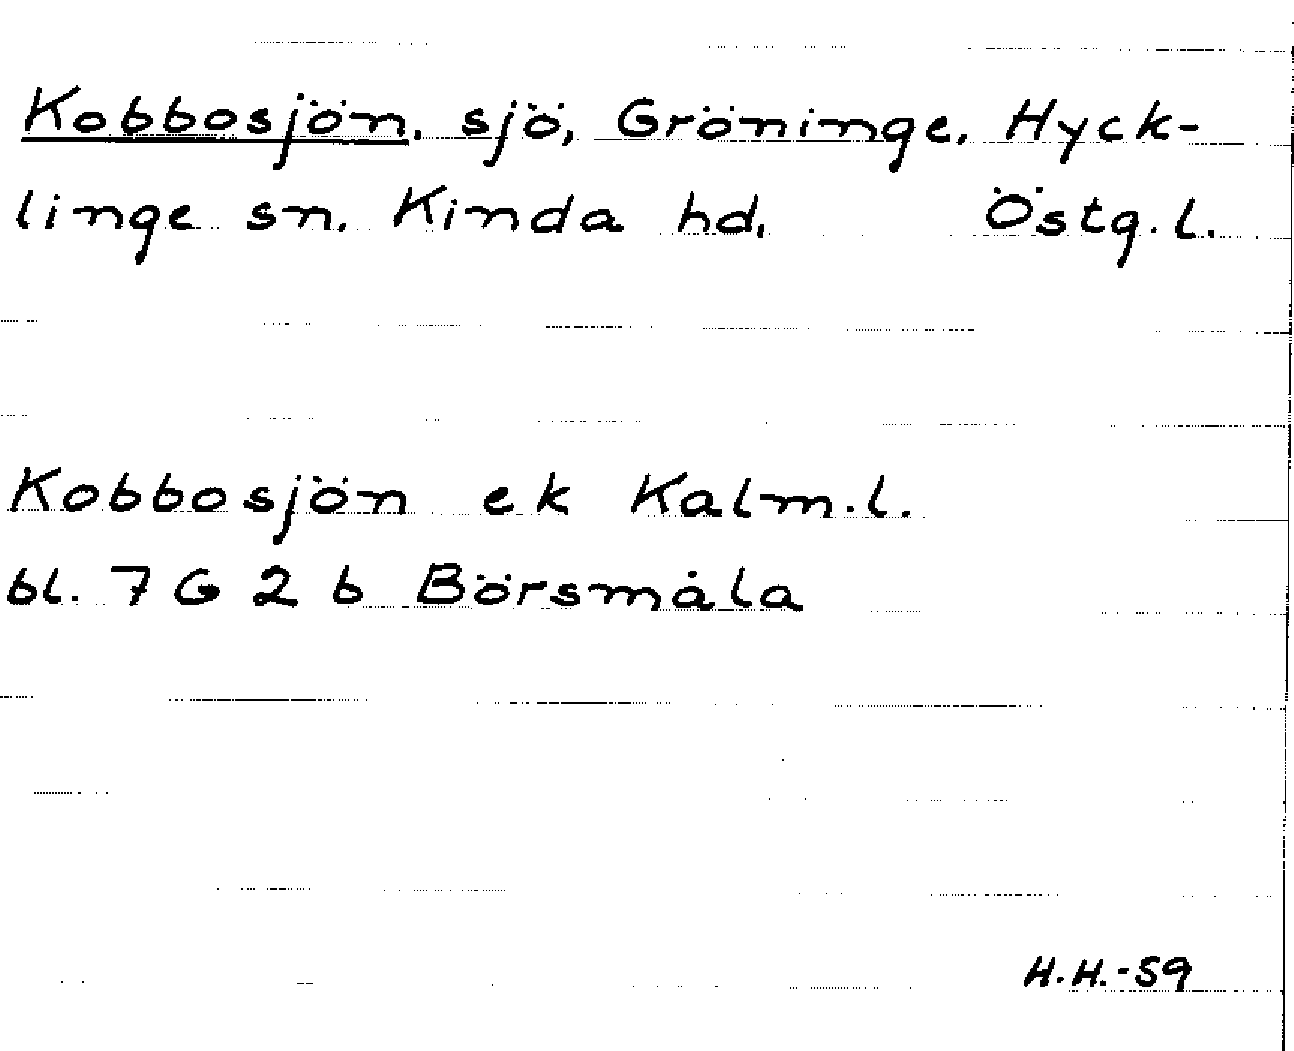 Kobbosjön, sjö, Gröninge, Hyck-
linge sn. Kinda hd, Östg.l.
Kobbosjön ek Kalm.l.
bl. 7 G 2 b Börsmåla
H.H.-59